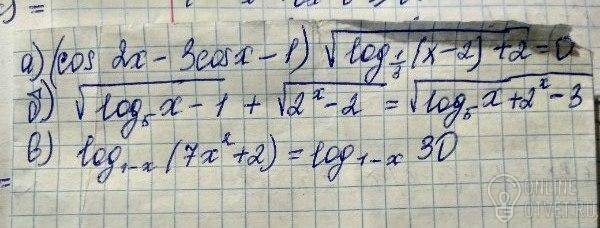 а) (cos 2x - 3cosx - 1) √(log_{1/3}(x-2) + 2) = 0
б) √(log_5 x - 1) + √(2^x - 2) = √(log_5 x + 2^x - 3)
в) log_{1-x} (7x^2 + 2) = log_{1-x} 30
ONLINE
OTVET.RU